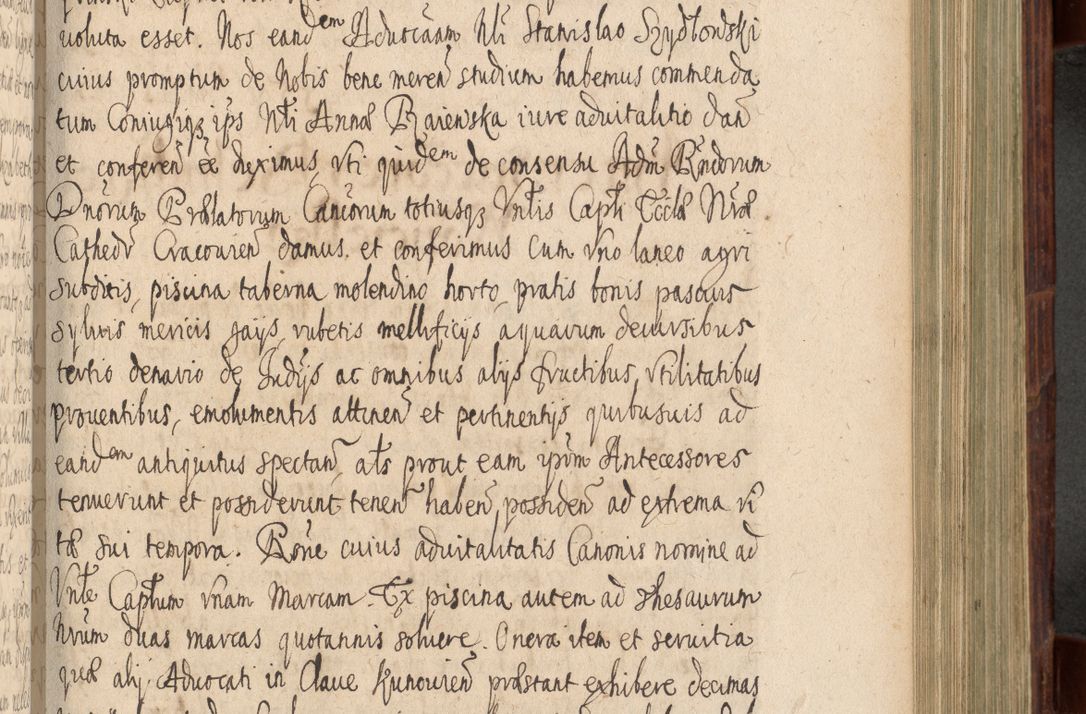 uoluta esset. Nos eand^em Aduocãam Nli Stanislao Szydłowski
cuius promptum de Nobis bene meren̄ studium habemus commenda
tum Coniugiqȝ ips Nłi Annæ Raiewska iure aduitalitio dan̄
et conferen̄ ēē duximus, vti quid^em de consensu Adm̄ Rn̄dorum
Dnōrum Prælatorum Canc̄orum totiusqȝ Vnłis Capłi Eccłæ Nræ
Cathedr̄ Cracouien̄ damus. et conferimus Cum vno laneo agri
subditis, piscina taberna molendino horto, pratis bonis pascuis
syluis mericis gaijs, rubetis mellificijs aquarum decursibus
tertio denario de Judijs ac omnibus alijs fructibus, vtilitatibus
prouentibus, emolumentis attinen̄ et pertinentijs quibusuis ad
eand^em antiquitus spectan̄, als prout eam ipm̄ Antecessores
tenuerunt et possiderunt tenen̄ haben̄, possiden̄ ad extrema vi
tæ sui tempora. Rōne cuius aduitalitatis Canonis nomine ad
Vnłe Capłum vnam Marcam. Ex piscina autem ad Thesaurum
Nrūm duas marcas quotannis soluere. Onera item et seruitia
quæ alij Aduocati in Claue Kunouien̄ præstant exhibere decimas